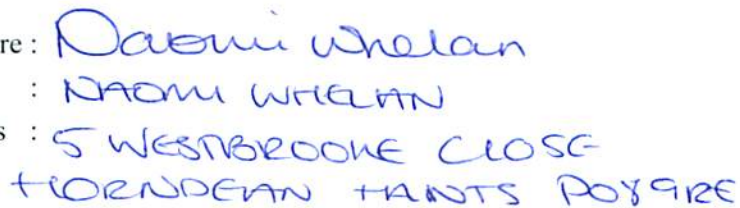 re : Naomi Whelan
: NAOMI WHELAN
s : 5 WESTBROOKE CLOSE
HORNDEAN HANTS PO8 9RE